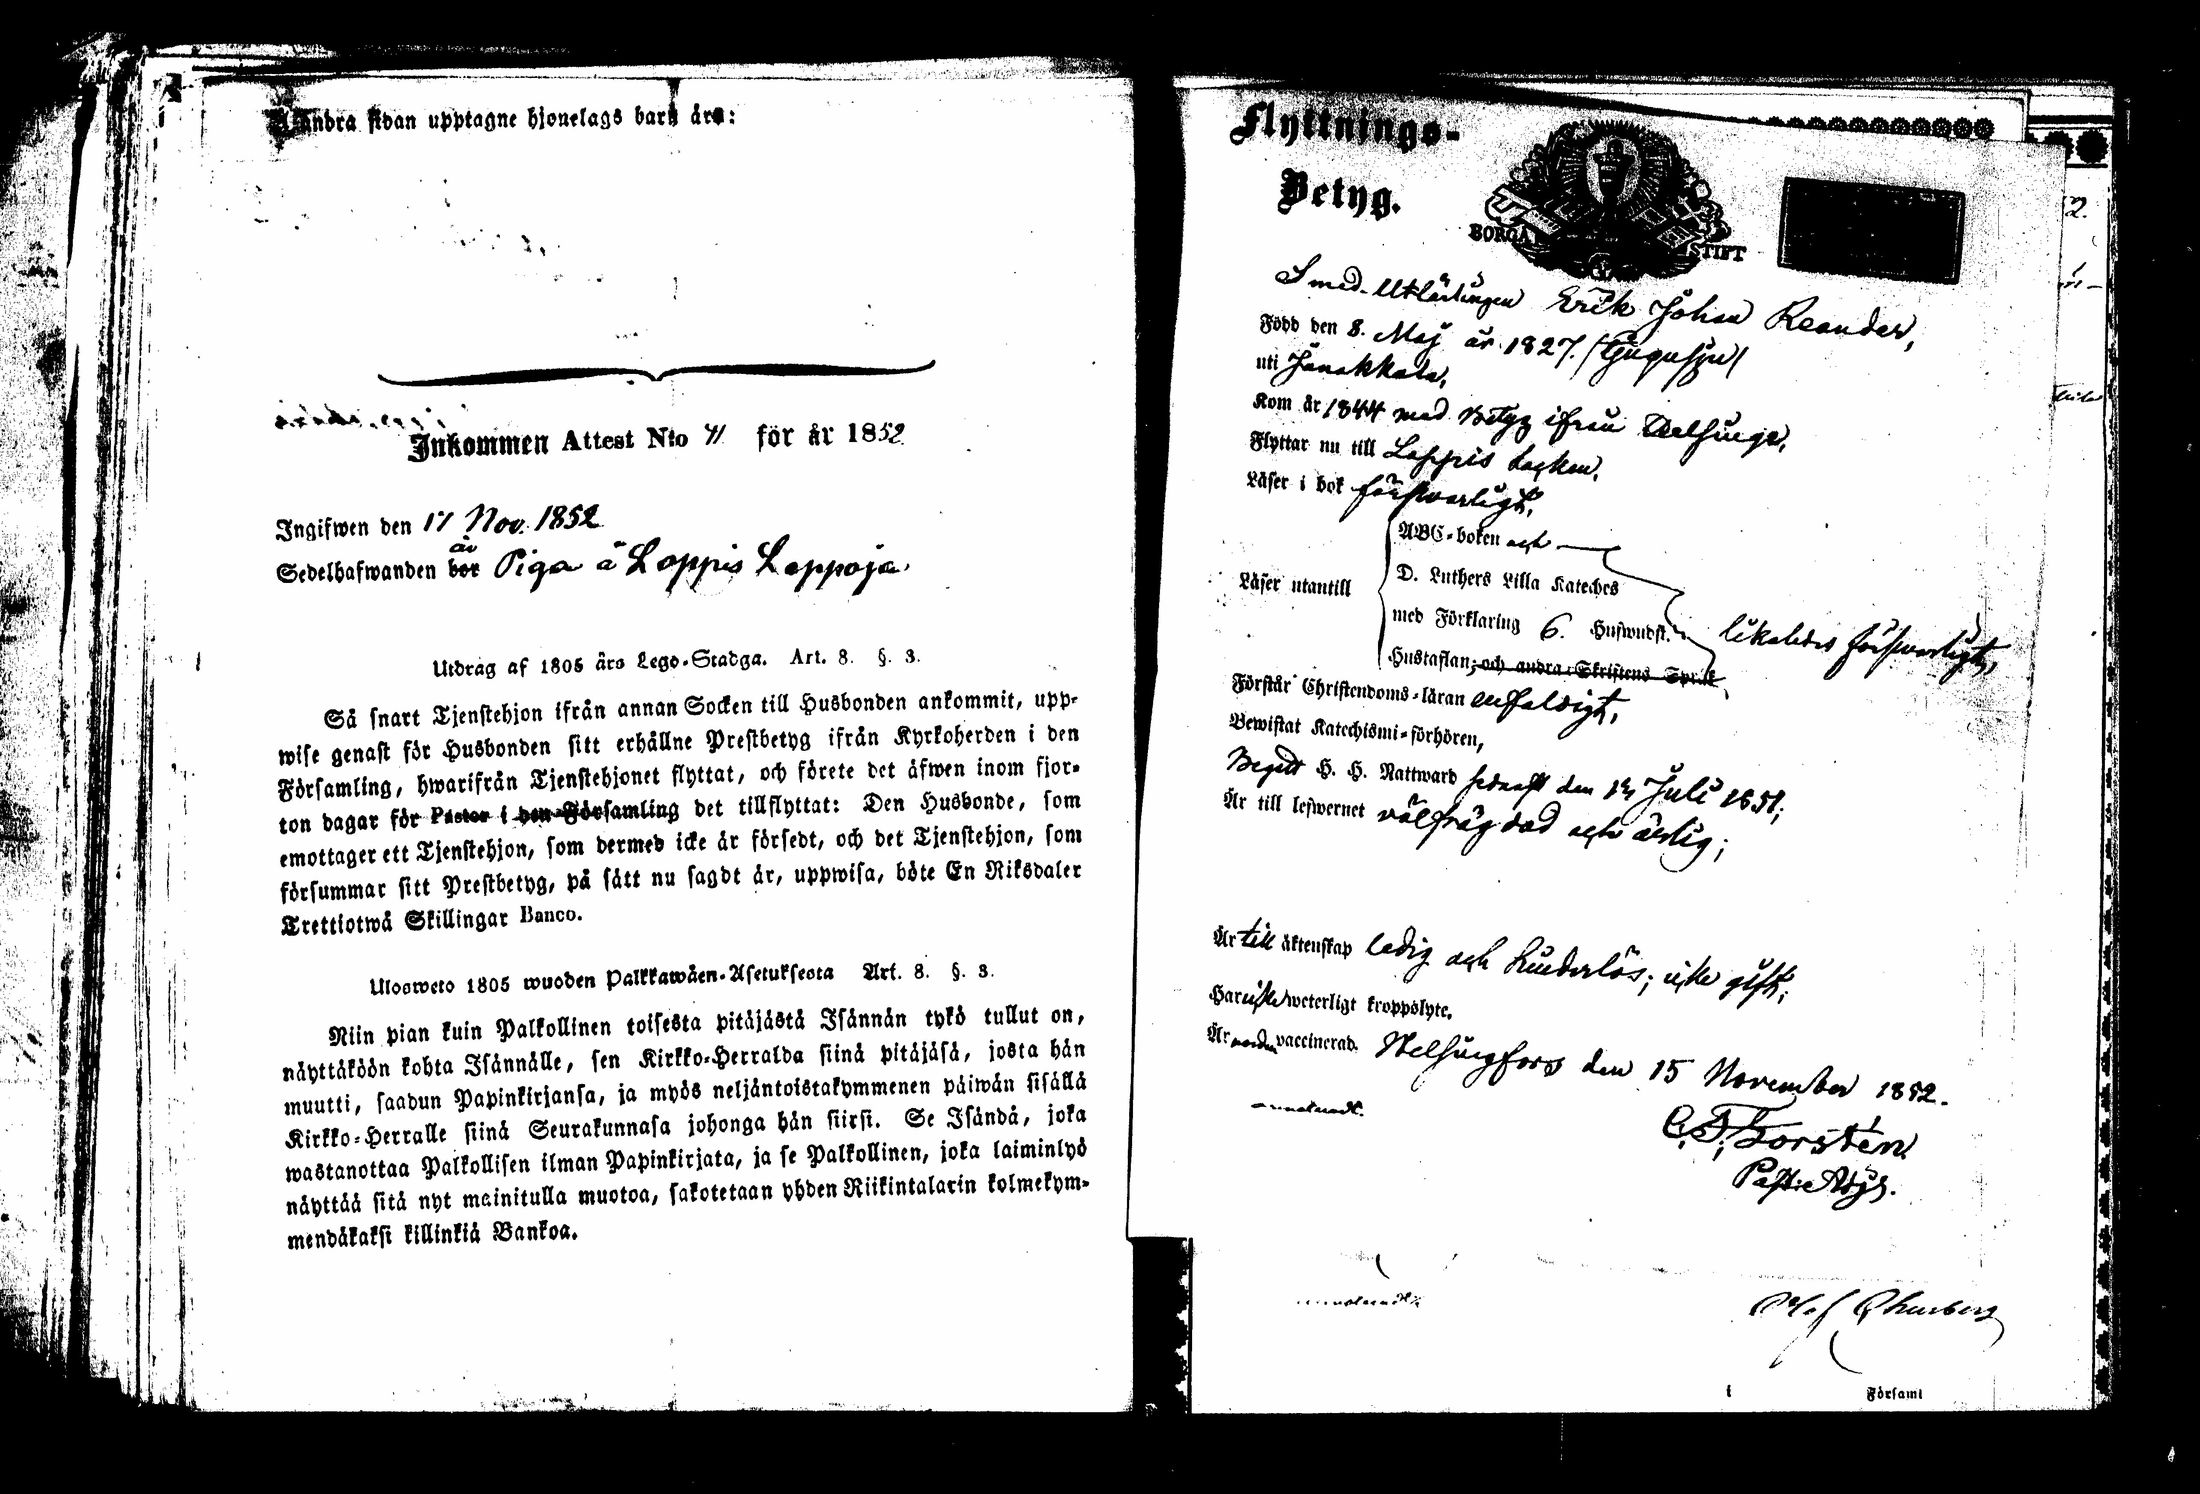 andra sidan upptagne hjonelags barn äro:
Inkommen Attest N:o 41 för år 1852
Ingifwen den 17 Nov. 1852
är
Sedelhafwanden bor Piga å Loppis Loppoja.
Utdrag af 1805 års Lego-Stadga. Art. 8. §. 3.
Så snart Tjenstehjon ifrån annan Socken till Husbonden ankommit, upp-
wise genast för Husbonden sitt erhållne Prestbetyg ifrån Kyrkoherden i den
Församling, hwarifrån Tjenstehjonet flyttat, och förete det äfwen inom fjor-
ton dagar för Pastor i den Församling det tillflyttat: Den Husbonde, som
emottager ett Tjenstehjon, som dermed icke är försedt, och det Tjenstehjon, som
försummar sitt Prestbetyg, på sätt nu sagdt är, uppwisa, böte En Riksdaler
Trettiotwå Skillingar Banco.
Ulosweto 1805 wuoden Palkkawäen-Asetuksesta Art. 8. §. 3.
Niin pian kuin Palkollinen toisesta pitäjästä Isännän tykö tullut on,
näyttäköön kohta Isännälle, sen Kirkko-Herralda siinä pitäjäsä, josta hän
muutti, saadun Papinkirjansa, ja myös neljäntoistakymmenen päiwän sisällä
Kirkko-Herralle siinä Seurakunnasa johonga hän siirsi. Se Isändä, joka
wastanottaa Palkollisen ilman Papinkirjata, ja se Palkollinen, joka laiminlyö
näyttää sitä nyt mainitulla muotoa, sakotetaan yhden Riikintalarin kolmekym-
mendäkaksi killinkiä Bankoa.
Flyttnings-
Betyg.
BORGÅ STIFT
Smed-Utlärlingen Erik Johan Reander,
Född den 8. Maj år 1827. /tjugusju/
uti Janakkala,
Kom år 1844 med Betyg ifrån Helsinge,
Flyttar nu till Loppis Socken,
Läser i bok försvarligt,
Läser utantill
ABC-boken och
D. Luthers Lilla Kateches
med Förklaring 6. Hufwudst.
Hustaflan, och andra Skriftens Språk
likaledes försvarligt,
Förstår Christendoms-läran enfaldigt,
Bewistat Katechismi-förhören,
Begått H. H. Nattward sednast den 13 Juli 1851;
Är till lefwernet välfrägdad och ärlig;
Är till äktenskap ledig och hinderlös; icke gift;
Har icke weterligt kroppslyte.
Är vaccinerad. Helsingfors den 15 November 1852.
C. J. Forstén
Past: Adj:s.
i Församl